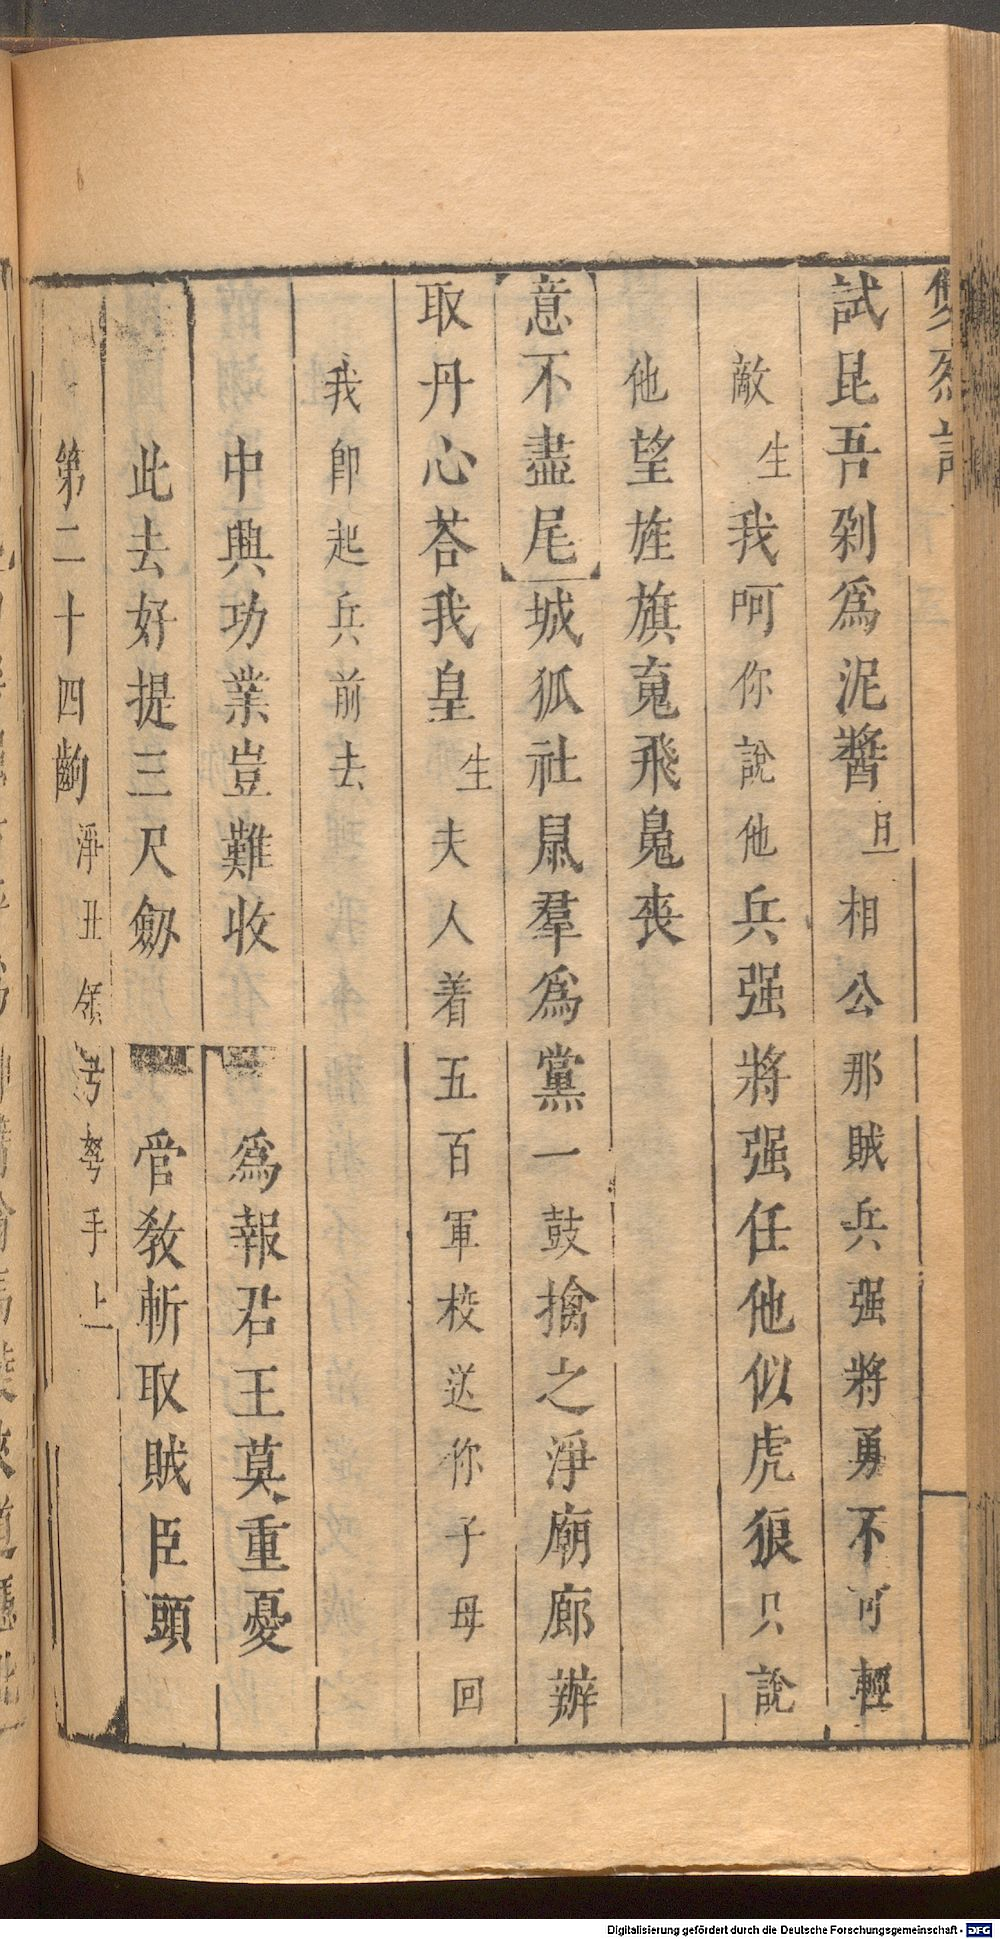 試昆吾剁爲泥醬旦相公那賊兵强將勇不可輕
敵生我呵你說他兵强將强任他似虎狼只說
他望旌旗䰟飛鬼喪
意不盡尾城狐社鼠羣爲黨一鼓擒之淨廟廊辦
取丹心荅我皇生夫人着五百軍校送你子母回
我即起兵前去
中興功業豈難收 爲報君王莫重憂
此去好提三尺劒 管教斬取賊臣頭
第二十四齣淨丑領弓弩手上
Digitalisierung gefördert durch die Deutsche Forschungsgemeinschaft - DFG